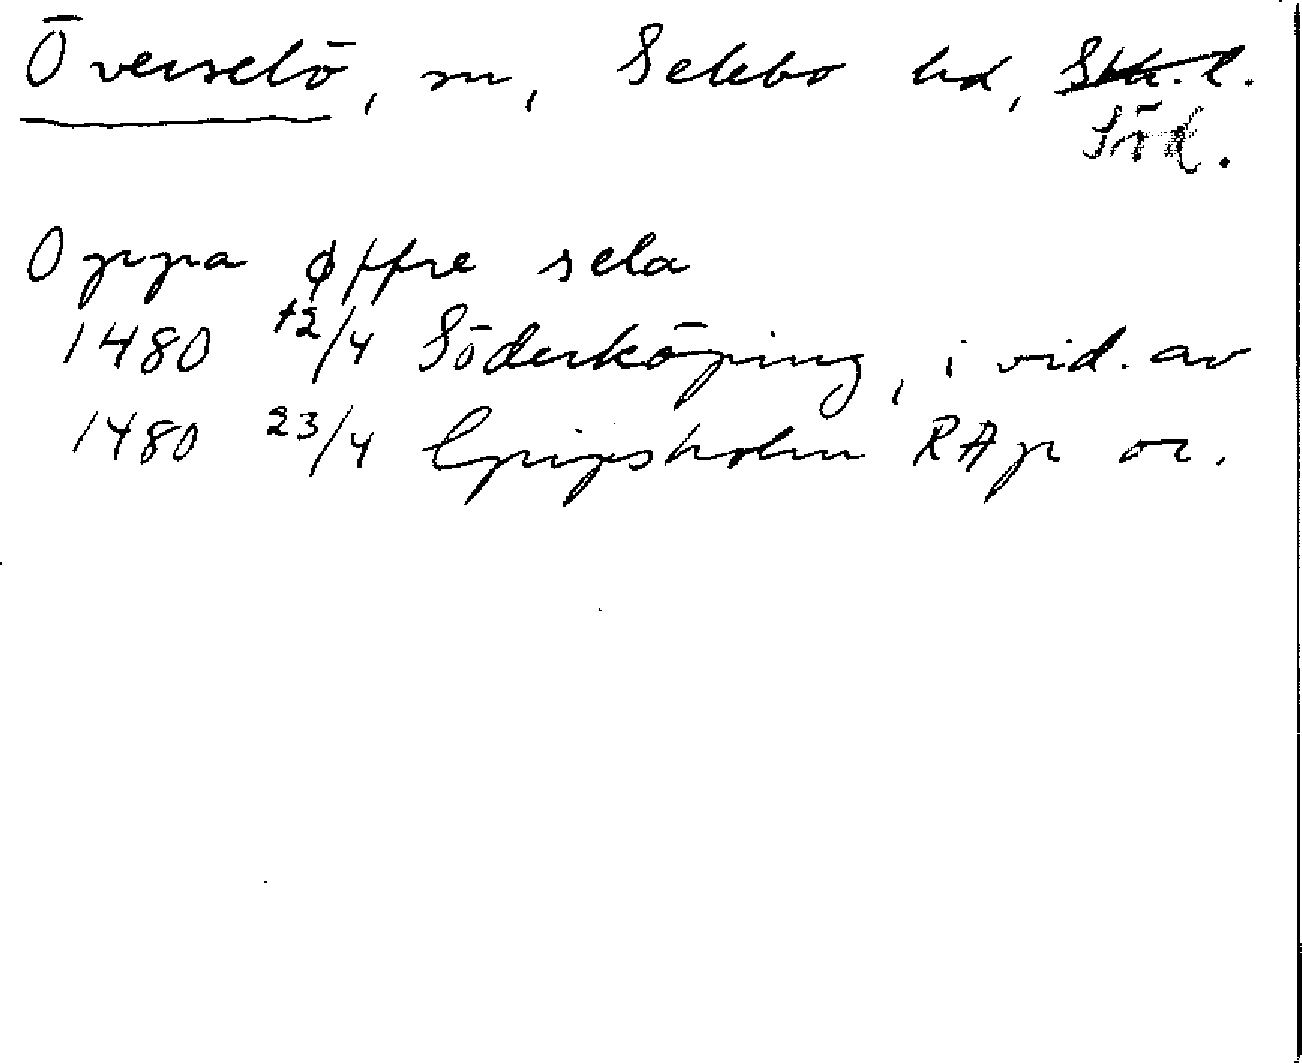 Överselö, sn, Selebo hd, Sth. l.
Söd.
Oppa øffre sela
1480 12/4 Söderköping, i vid. av
1480 23/4 Gripsholm RAp or.